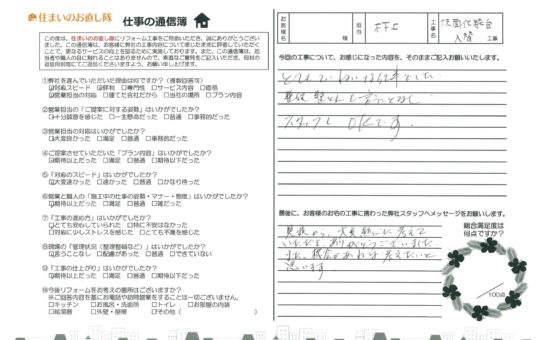 住まいのお直し隊 仕事の通信簿
この度は、住まいのお直し隊にリフォーム工事をご用命いただき、誠にありがとうござい
ました。この通信簿は、お客様に弊社の工事内容について感じたままに評価していただく
ことで、更なるサービスの向上を図るために実施しております。また、この通信簿は、担
当者や職人の目に触れることはありませんので、率直なご意見をご記入いただき、同封の
返信用封筒にてご返信くださいますよう、お願い申し上げます。
①弊社を選んでいただいた理由は何ですか?(複数回答可)
対応スピード □評判 □専門性 □サービス内容 □価格
営業担当の対応 □建てた会社だから □当社の場所 □プラン内容
②営業担当の「ご提案に対する姿勢」はいかがでしたか?
十分誠意を感じた □一生懸命だった □普通 □事務的だった
③営業担当の対応はいかがでしたか?
大変良かった □満足 □普通 □事務的だった
④ご提案させていただいた「プラン内容」はいかがでしたか?
期待以上だった □満足 □普通 □期待以下だった
⑤「対応のスピード」はいかがでしたか?
大変速かった □速かった □普通 □かなり待った
⑥営業と職人の「施工中の仕事の姿勢・マナー・態度」はいかがでしたか?
期待以上だった □満足 □普通 □雑だった
⑦「工事の進め方」はいかがでしたか?
とても安心していられた □特に不安はなかった
□対応に少しストレスを感じた □とても不満を感じた
⑧現場の「管理状況(整理整頓など)」はいかがでしたか?
言うことなし □配慮があった □普通 □できていない
⑨「工事の仕上がり」はいかがでしたか?
期待以上だった □満足 □普通 □期待以下だった
⑩今後リフォームをお考えの箇所はございますか?
※ご回答内容を基にお電話や訪問営業をすることは一切ございません。
□キッチン □お風呂・洗面所 □トイレ □お部屋の内装
□給湯器 □外壁・屋根 □その他( )
お客様名
担当
工事名
洗面化粧台
入替
今回の工事について、お感じになった内容を、そのままご記入お願いいたします。
とてもていねいな仕事でした
整理 整とんも言うことなし
スタッフも OKです。
最後に、お客様のお宅の工事に携わった弊社スタッフへメッセージをお願いします。
見積から、大変親切に対応して
いただき、ありがとうございました。
また、機会があればお願いしたいと
思います。
総合満足度は
何点ですか?
/100点